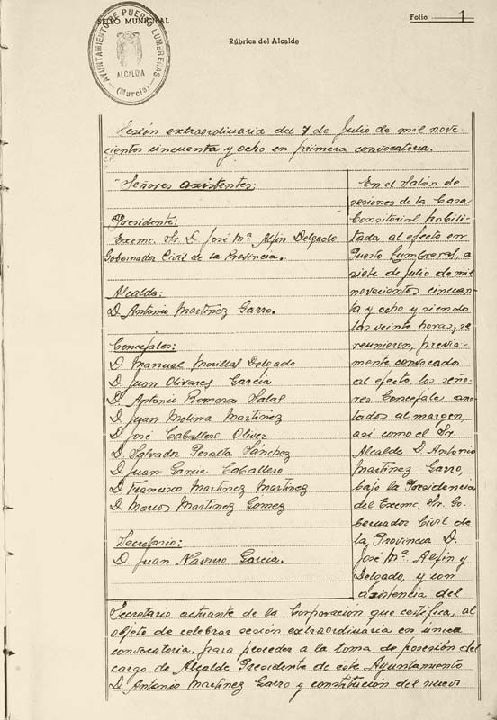 SELLO MUNICIPAL
AYUNTAMIENTO DE PUERTO LUMBRERAS
ALCALDIA
(Murcia)
Rúbrica del Alcalde
Folio 1
Sesión extraordinaria del 7 de Julio de mil nove-
cientos cincuenta y ocho en primera convocatoria.
Señores asistentes:
Presidente:
Excmo. Sr. D. José Mª Alfín Delgado
Gobernador Civil de la Provincia.
Alcalde:
D. Antonio Martínez Garro.
Concejales:
D. Manuel Morillas Delgado
D. Juan Olivares García
D. Antonio Romera
D. Juan Molina Martínez
D. José Caballero Oliver
D. Salvador Peralta Sánchez
D. Juan García Caballero
D. Francisco Martínez Martínez
D. Marcos Martínez Gómez
Secretario:
D. Juan García.
En el Salón de
sesiones de la Casa
Consistorial habili-
tada al efecto en
Puerto Lumbreras, a
siete de Julio de mil
novecientos cincuen-
ta y ocho y siendo
las veinte horas, se
reunieron, previa-
mente convocados
al efecto, los seño-
res Concejales ano-
tados al margen,
así como el Sr.
Alcalde D. Antonio
Martínez Garro,
bajo la Presidencia
del Excmo. Sr. Go-
bernador Civil de
la Provincia D.
José Mª Alfín y
Delgado, y con
asistencia del
Secretario actuante de la Corporación que certifica, al
objeto de celebrar sesión extraordinaria en única
convocatoria, para proceder a la toma de posesión del
cargo de Alcalde Presidente de este Ayuntamiento
D. Antonio Martínez Garro y constitución del nuevo